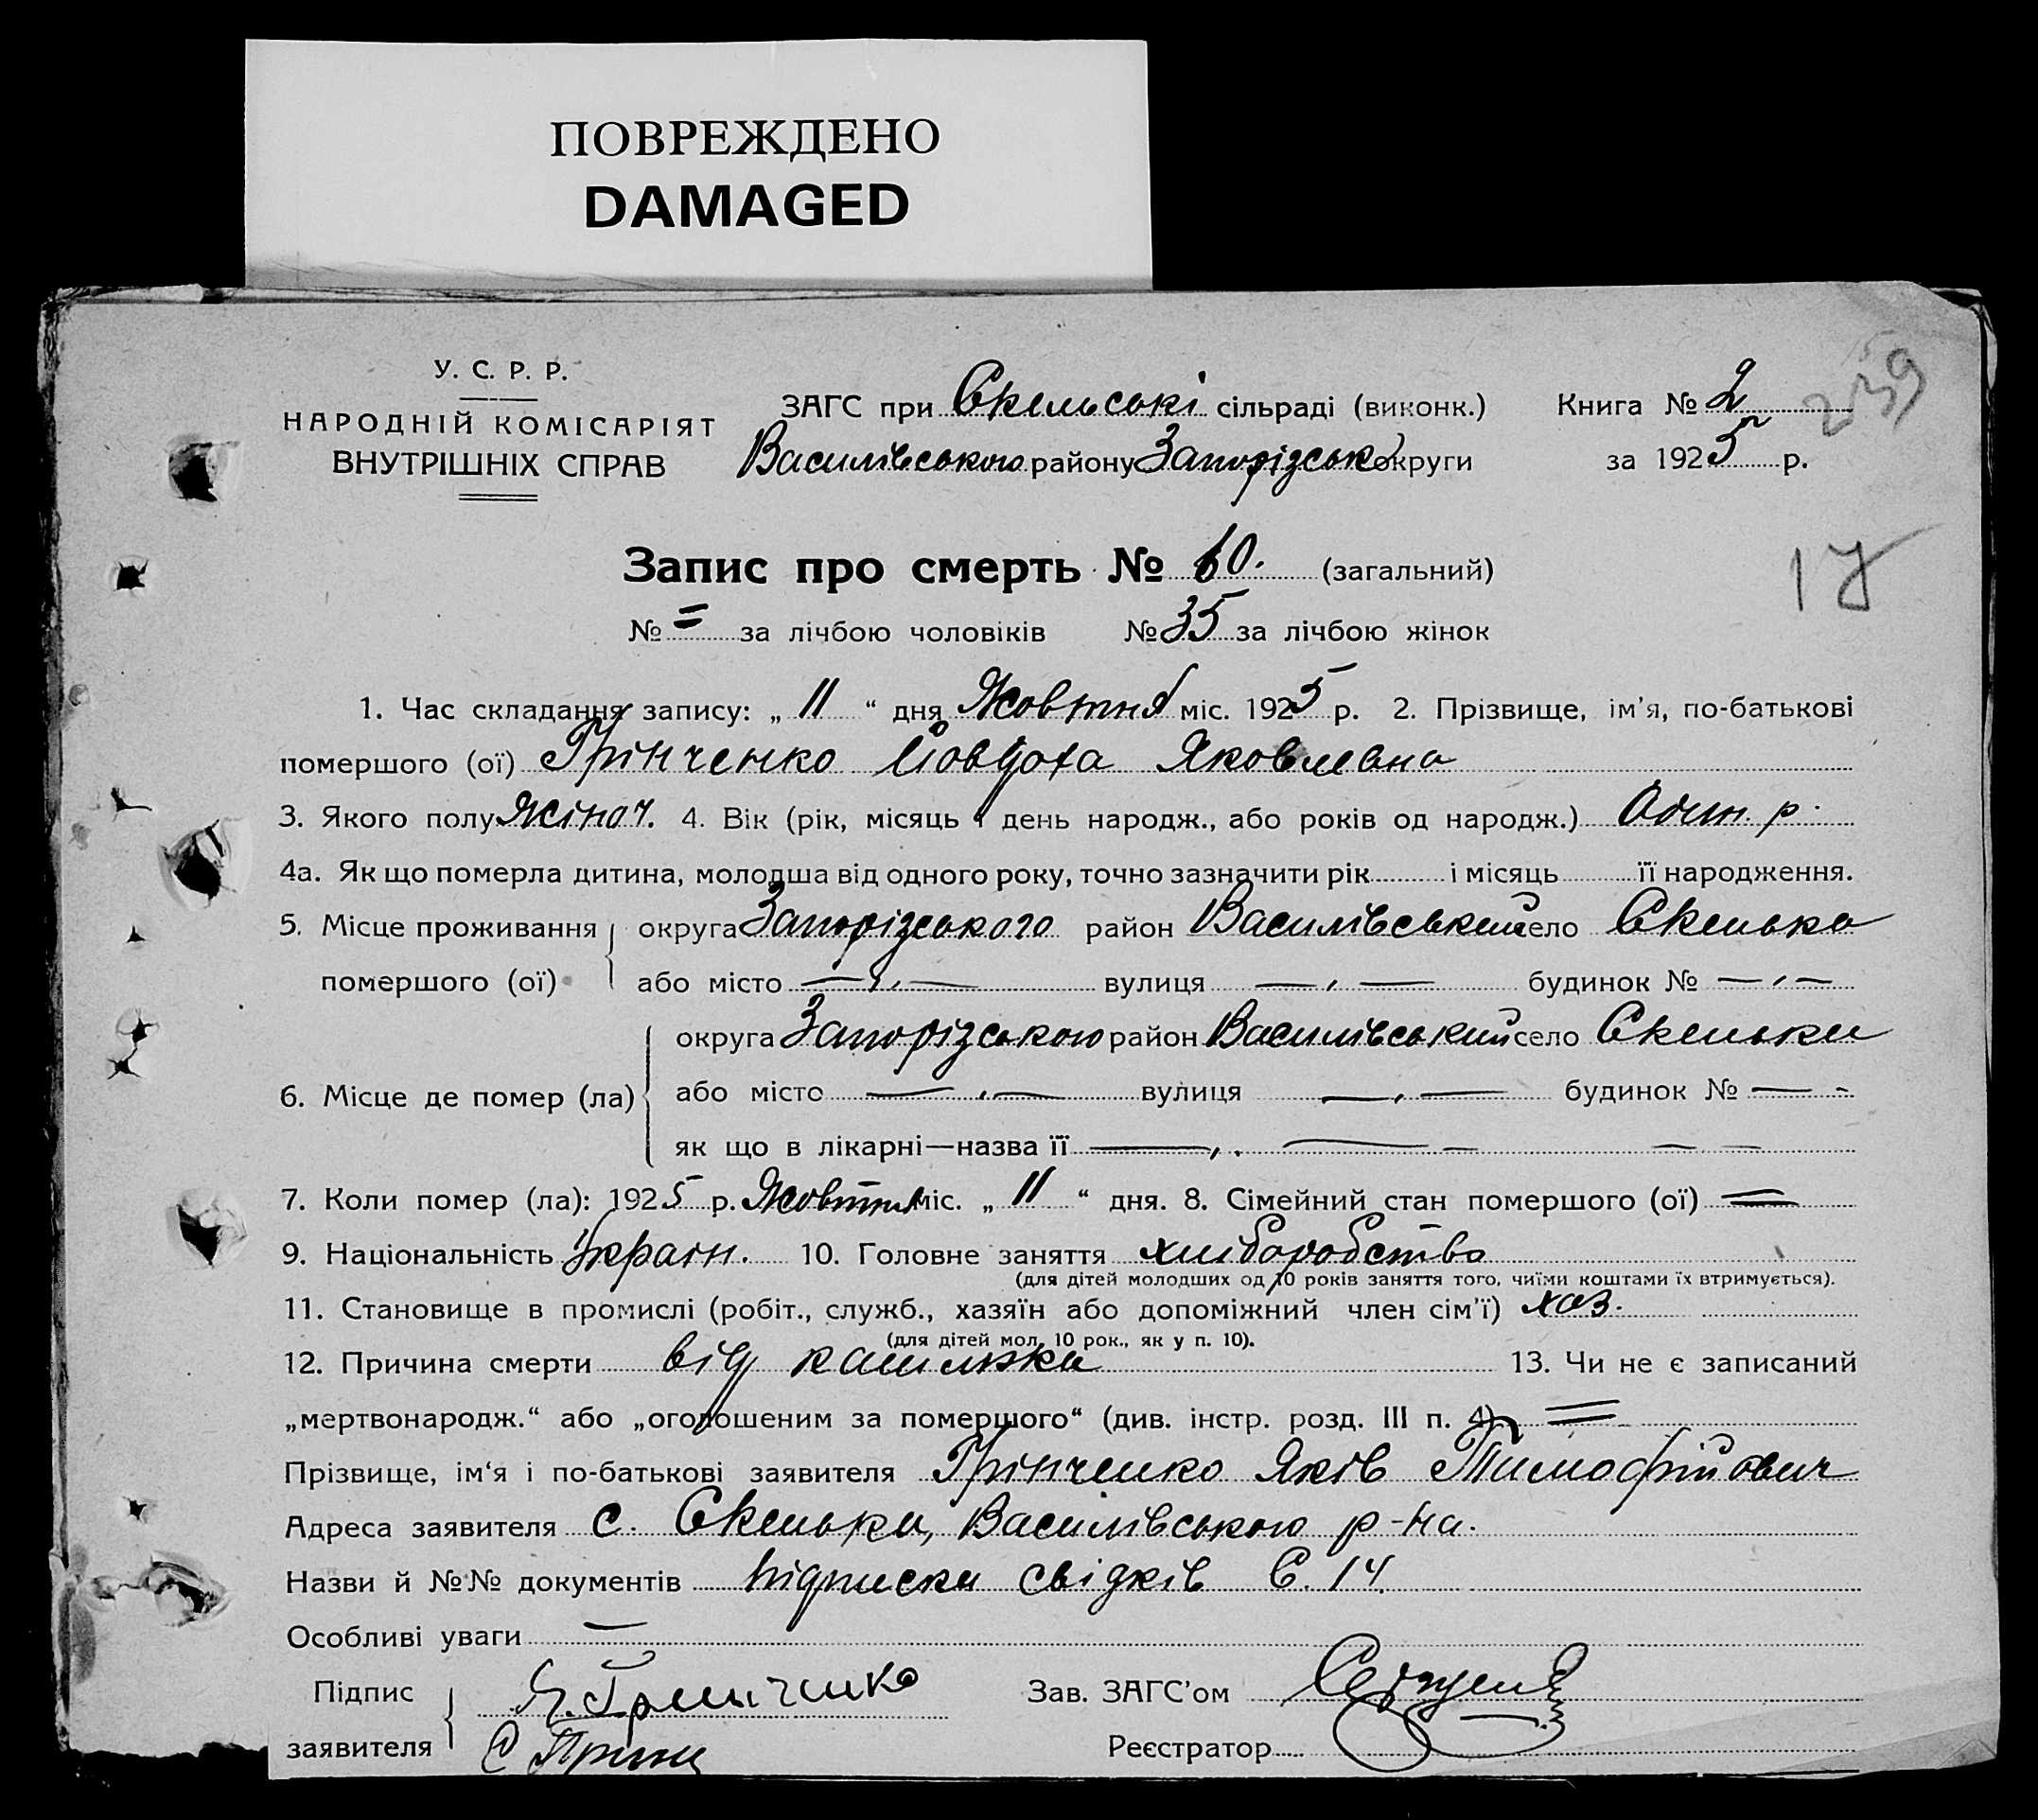 ПОВРЕЖДЕНО
DAMAGED
У. С. Р. Р.
НАРОДНІЙ КОМІСАРІЯТ
ВНУТРІШНІХ СПРАВ
ЗАГС при Скельські сільраді (виконк.)
Василівського району Запорізсько округи
Книга № 2
за 1925 р.
239
17
Запис про смерть № 60. (загальний)
№ = за лічбою чоловіків № 35 за лічбою жінок
1. Час складання запису: „ 11 “ дня Жовтня міс. 1925 р. 2. Прізвище, ім'я, по-батькові
помершого (ої) Грінченко Йовдоха Яковлевна
3. Якого полу Жіноч. 4. Вік (рік, місяць і день народж., або років од народж.) Один. р.
4а. Як що померла дитина, молодша від одного року, точно зазначити рік і місяць її народження.
5. Місце проживання округа Запорізського район Василівський село Скелька
помершого (ої) або місто — „ — вулиця — „ — будинок № — „ —
округа Запорізського район Василівський село Скельки
6. Місце де помер (ла) або місто — „ — вулиця — „ — будинок № — -
як що в лікарні—назва її — „ — — — —
7. Коли помер (ла): 1925 р. Жовтня міс. „ 11 “ дня. 8. Сімейний стан помершого (ої) =
9. Національність Україн. 10. Головне заняття хліборобство
(для дітей молодших од 10 років заняття того, чиїми коштами їх втримується).
11. Становище в промислі (робіт., служб., хазяїн або допоміжний член сім'ї) хаз.
(для дітей мол. 10 рок., як у п. 10).
12. Причина смерти від кашлюка 13. Чи не є записаний
„мертвонародж.“ або „оголошеним за помершого“ (див. інстр. розд. III п. 4) =
Прізвище, ім'я і по-батькові заявителя Грінченко Яків Тимофійович
Адреса заявителя с. Скельки, Василівського р-на.
Назви й №№ документів підписки свідків С. 14.
Особливі уваги —
Підпис Я. Гринченко Зав. ЗАГС'ом
заявителя Реєстратор